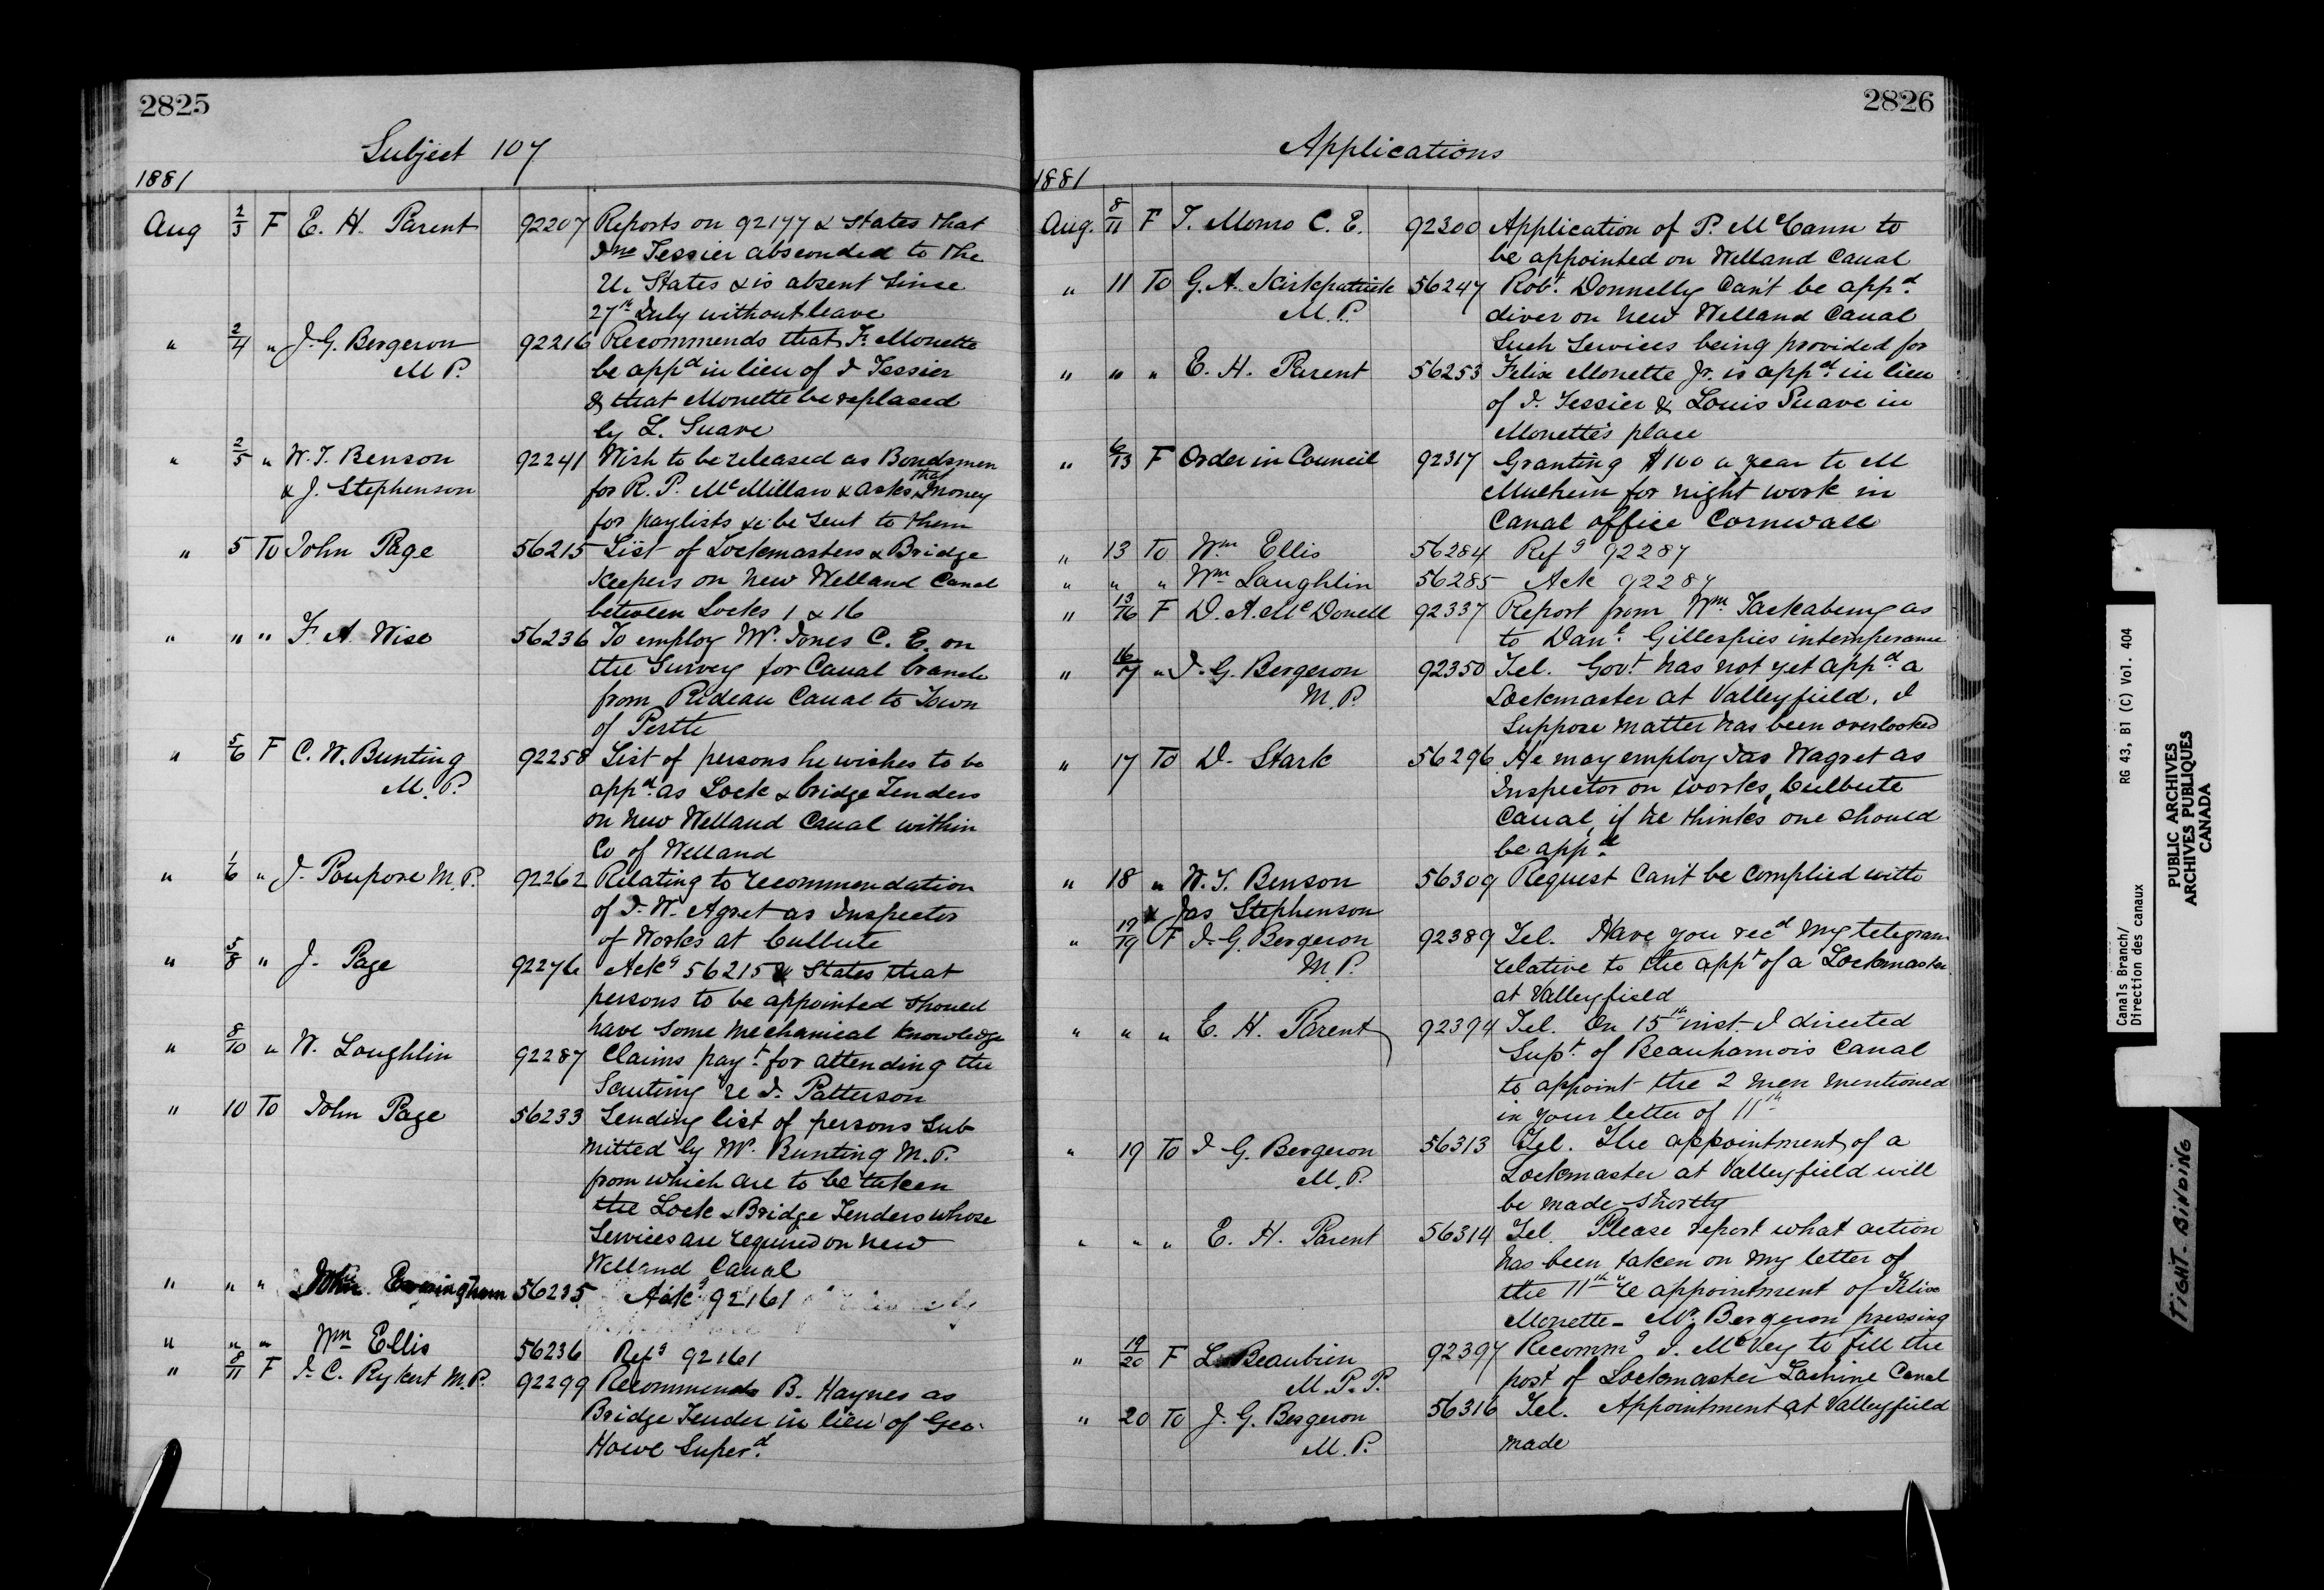 2825
Subject 107
1881
Aug 2/3 F E. H. Parent 92207 Reports on 92177 & States that
Jno Tessier absconded to the
U. States & is absent since
27th July without leave
" 2/4 " J. G. Bergeron 92216 Recommends that F. Monette
M P. be appd in lieu of J Tessier
& that Monette be replaced
by L. Suave
" 2/5 " W. T. Benson 92241 Wish to be released as Bondsmen
& J. Stephenson for R. P. McMillan & asks that money
for paylists &c be sent to them
" 5 To John Page 56215 List of Lockmasters & Bridge
Keepers on New Welland Canal
between Locks 1 & 16
" " " F. A. Wise 56236 To employ Mr. Jones C. E. on
the Survey for Canal branch
from Rideau Canal to Town
of Perth
" 5/6 F C. W. Bunting 92258 List of persons he wishes to be
M. P. appd. as Lock & bridge Tenders
on New Welland Canal within
Co of Welland
" 1/6 " J. Poupore M. P. 92262 Relating to recommendation
of J. W. Agret as Inspector
of Works at Culbute
" 5/8 " J. Page 92276 Ackg 56215 & States that
persons to be appointed should
have some mechanical knowledge
" 8/10 " W. Loughlin 92287 Claims payt. for attending the
Scuting re J. Patterson
" 10 To John Page 56233 Sending list of persons sub
mitted by Mr. Bunting M. P.
from which are to be taken
the Lock & Bridge Tenders whose
Services are required on New
Welland Canal
" " " John Evringham 56235 Ackg 92161
" " " Wm Ellis 56236 Refg 92161
" 8/11 F J. C. Rykert M. P. 92299 Recommends B. Haynes as
Bridge Tender in lieu of Geo.
Howe Superd.
2826
Applications
1881
Aug. 8/11 F T. Monro C. E. 92300 Application of P. McCann to
be appointed on Welland Canal
" 11 To G. A. Kirkpatrick 56247 Robt. Donnelly Can't be appd.
M. P. diver on New Welland Canal
Such Services being provided for
" " " E. H. Parent 56253 Felix Monette Jr. is appd. in lieu
of J. Tessier & Louis Suave in
Monette's place
" 6/13 F Order in Council 92317 Granting $100 a year to M
Mulhern for night work in
Canal office Cornwall
" 13 To Wm Ellis 56284 Refg 92287
" " " Wm Laughlin 56285 Ack 92287
" 13/16 F D. A. McDonell 92337 Report from Wm Tackabury as
to Danl. Gillespies intemperance
" 16/17 " J. G. Bergeron 92350 Tel. Govt has not yet appd. a
M. P. Lockmaster at Valleyfield. I
Suppose matter has been overlooked
" 17 To D. Stark 56296 He may employ Jas Wagret as
Inspector on works, Culbute
Canal, if he thinks one should
be appd
" 18 " W. T. Benson 56309 Request Can't be complied with
& Jas Stephenson
" 19/19 F J. G. Bergeron 92389 Tel. Have you recd my telegram
M. P. relative to the appt of a Lockmaster
at Valleyfield
" " " E. H. Parent 92394 Tel. On 15th inst. I directed
Supt. of Beauharnois Canal
to appoint the 2 men mentioned
in your letter of 11th
" 19 To J G. Bergeron 56313 Tel. The appointment of a
M. P. Lockmaster at Valleyfield will
be made shortly
" " " E. H. Parent 56314 Tel. Please report what action
has been taken on my letter of
the 11th re appointment of Felix
Monette - Mr. Bergeron pressing
" 19/20 F L Beaubien 92397 Recommg J. McVey to fill the
M. P. P. post of Lockmaster Lachine Canal
" 20 To J. G. Bergeron 56316 Tel. Appointment at Valleyfield
M. P. made
Canals Branch/ RG 43, B1 (C) Vol. 404
Direction des canaux
PUBLIC ARCHIVES
ARCHIVES PUBLIQUES
CANADA
TIGHT BINDING